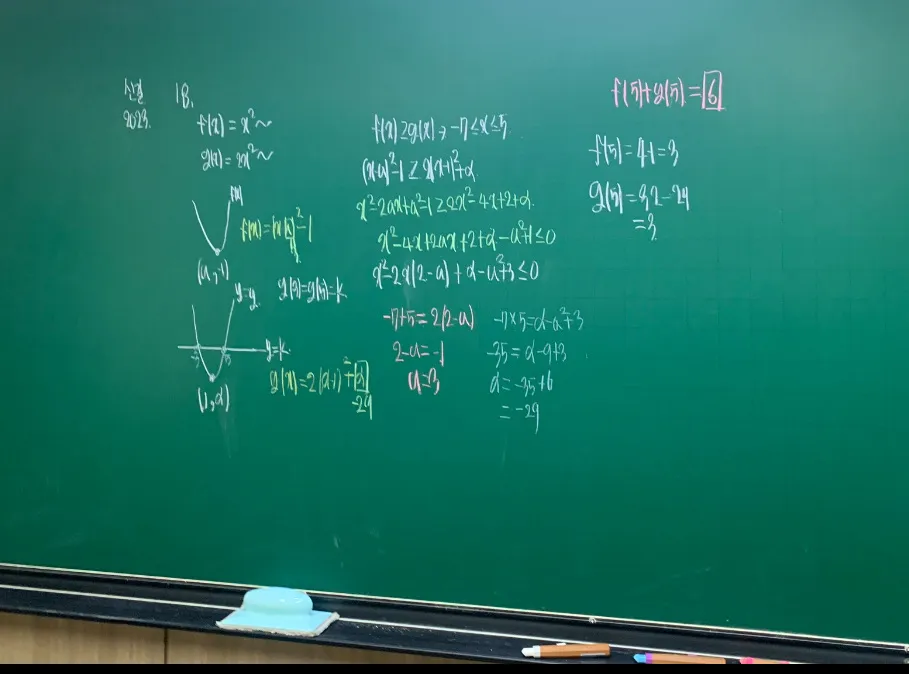 2023.
18.
f(x) = x²~
g(x) = 2x²~
f(x)
(a, -1)
f(x) = (x-a)² - 1
3
g(-3) = g(5) = k
y = g
y = k
-3 5
(1, α)
g(x) = 2(x-1)² + α
-29
f(x) ≥ g(x) → -7 ≤ x ≤ 5
(x-a)² - 1 ≥ 2(x-1)² + α
x² - 2ax + a² - 1 ≥ 2x² - 4x + 2 + α
x² - 4x + 2ax + 2 + α - a² + 1 ≤ 0
x² - 2x(2-a) + α - a² + 3 ≤ 0
-7+5 = 2(2-a)
2-a = -1
a = 3
-7×5 = α - a² + 3
-35 = α - 9 + 3
α = -35 + 6
= -29
f(5) + g(5) = 6
f(5) = 4-1 = 3
g(5) = 32 - 29
= 3